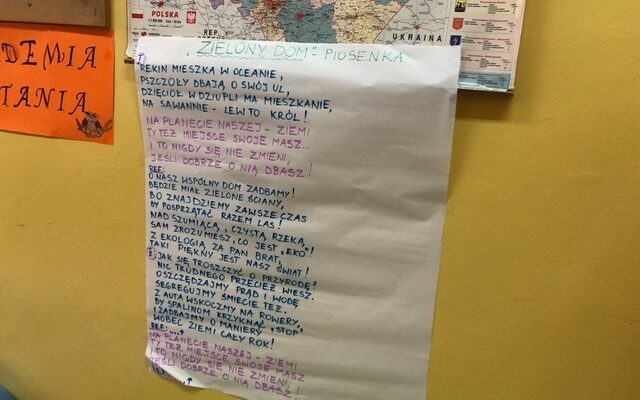 POLSKA
REP.
UKRAINA
DEMIA
TANIA
„ZIELONY DOM" - PIOSENKA
REKIN MIESZKA W OCEANIE,
PSZCZOŁY DBAJĄ O SWÓJ UL,
DZIĘCIOŁ W DZIUPLI MA MIESZKANIE,
NA SAWANNIE - LEW TO KRÓL!
NA PLANECIE NASZEJ - ZIEMI
TY TEŻ MIEJSCE SWOJE MASZ...
I TO NIGDY SIĘ NIE ZMIENI,
JEŚLI DOBRZE O NIĄ DBASZ!
REF:
O NASZ WSPÓLNY DOM ZADBAMY!
BĘDZIE MIAŁ ZIELONE ŚCIANY,
BO ZNAJDZIEMY ZAWSZE CZAS
BY POSPRZĄTAĆ RAZEM LAS!
NAD SZUMIĄCĄ, CZYSTĄ RZEKĄ,
SAM ZROZUMIESZ, CO JEST „EKO"!
Z EKOLOGIĄ ZA PAN BRAT,
TAKI PIĘKNY JEST NASZ ŚWIAT!
JAK SIĘ TROSZCZYĆ O PRZYRODĘ?
NIC TRUDNEGO PRZECIEŻ WIESZ.
OSZCZĘDZAJMY PRĄD I WODĘ
SEGREGUJMY ŚMIECIE TEŻ.
Z AUTA WSKOCZMY NA ROWERY,
BY SPALINOM KRZYKNĄĆ „STOP"
I ZADBAJMY O MANIERY
WOBEC ZIEMI CAŁY ROK!
REF:....
NA PLANECIE NASZEJ - ZIEMI
TY TEŻ MIEJSCE SWOJE MASZ
I TO NIGDY SIĘ NIE ZMIENI,
JEŚLI DOBRZE O NIĄ DBASZ!
REF:....